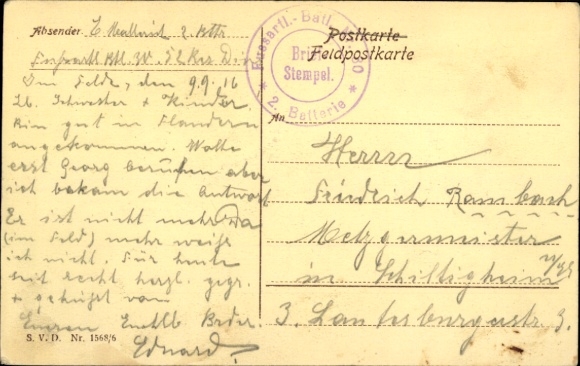 Absender
Im Felde, den 9.9.16
Lb. Schwester + Kinder
Bin gut in Flandern
angekommen. Wollte
erst Georg besuchen aber
ich bekam die Antwort
Er ist nicht mehr da
(im Feld) mehr weiß
ich nicht. Für heute
seit recht herzl. gegr.
+ geküßt von
Eurem Bruder
Eduard.
S. V. D. Nr. 1568/6
Fussartl.-Batl.
Brief
Stempel.
* 2. Batterie *
Postkarte
Feldpostkarte
An
Herrn
Friedrich Rambach
Metzgermeister
in Schiltigheim
3. Lauterburgerstr. 3.